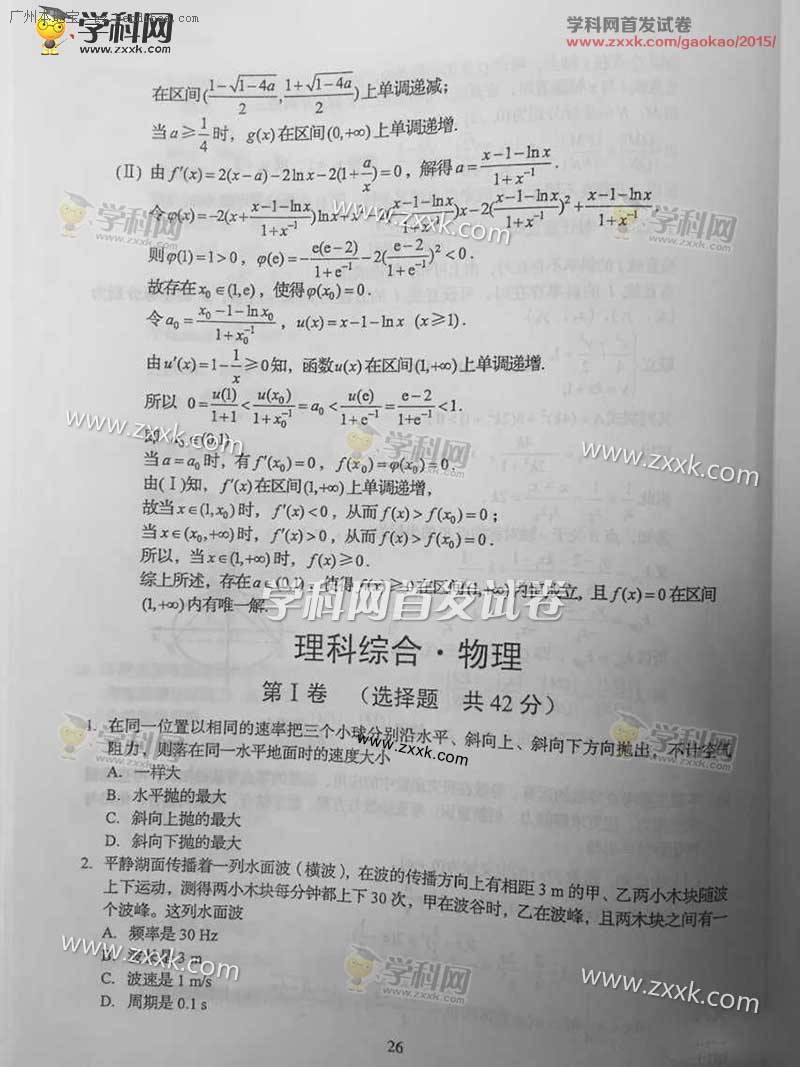 学科网
www.zxxk.com
学科网首发试卷
www.zxxk.com/gaokao/2015/
在区间(\frac{1-\sqrt{1-4a}}{2},\frac{1+\sqrt{1-4a}}{2})上单调递减；
当a≥\frac{1}{4}时，g(x)在区间(0,+∞)上单调递增.
(Ⅱ) 由f′(x)=2(x-a)-2lnx-2(1+\frac{a}{x})=0，解得a=\frac{x-1-lnx}{1+x^{-1}}.
令φ(x)=-2(x+\frac{x-1-lnx}{1+x^{-1}})lnx+x²-2(\frac{x-1-lnx}{1+x^{-1}})x-2(\frac{x-1-lnx}{1+x^{-1}})²+\frac{x-1-lnx}{1+x^{-1}},
则φ(1)=1>0，φ(e)=-\frac{e(e-2)}{1+e^{-1}}-2(\frac{e-2}{1+e^{-1}})²<0.
故存在x₀∈(1,e)，使得φ(x₀)=0.
令a₀=\frac{x₀-1-lnx₀}{1+x₀^{-1}}，u(x)=x-1-lnx (x≥1).
由u′(x)=1-\frac{1}{x}≥0知，函数u(x)在区间(1,+∞)上单调递增.
所以 0=\frac{u(1)}{1+1}<\frac{u(x₀)}{1+x₀^{-1}}=a₀<\frac{u(e)}{1+e^{-1}}=\frac{e-2}{1+e^{-1}}<1.
即 ₀∈(0,1).
当a=a₀时，有f′(x₀)=0，f(x₀)=φ(x₀)=0.
由(Ⅰ)知，f′(x)在区间(1,+∞)上单调递增，
故当x∈(1,x₀)时，f′(x)<0，从而f(x)>f(x₀)=0；
当x∈(x₀,+∞)时，f′(x)>0，从而f(x)>f(x₀)=0.
所以，当x∈(1,+∞)时，f(x)≥0.
综上所述，存在a∈(0,1)，使得f(x)≥0在区间(1,+∞)内恒成立，且f(x)=0在区间
(1,+∞)内有唯一解.
学科网首发试卷
理科综合·物理
第Ⅰ卷 （选择题 共42分）
1. 在同一位置以相同的速率把三个小球分别沿水平、斜向上、斜向下方向抛出，不计空气
阻力，则落在同一水平地面时的速度大小
A. 一样大
B. 水平抛的最大
C. 斜向上抛的最大
D. 斜向下抛的最大
2. 平静湖面传播着一列水面波（横波），在波的传播方向上有相距3 m的甲、乙两小木块随波
上下运动，测得两小木块每分钟都上下30次，甲在波谷时，乙在波峰，且两木块之间有一
个波峰。这列水面波
A. 频率是30 Hz
B. 波长是3 m
C. 波速是1 m/s
D. 周期是0.1 s
26